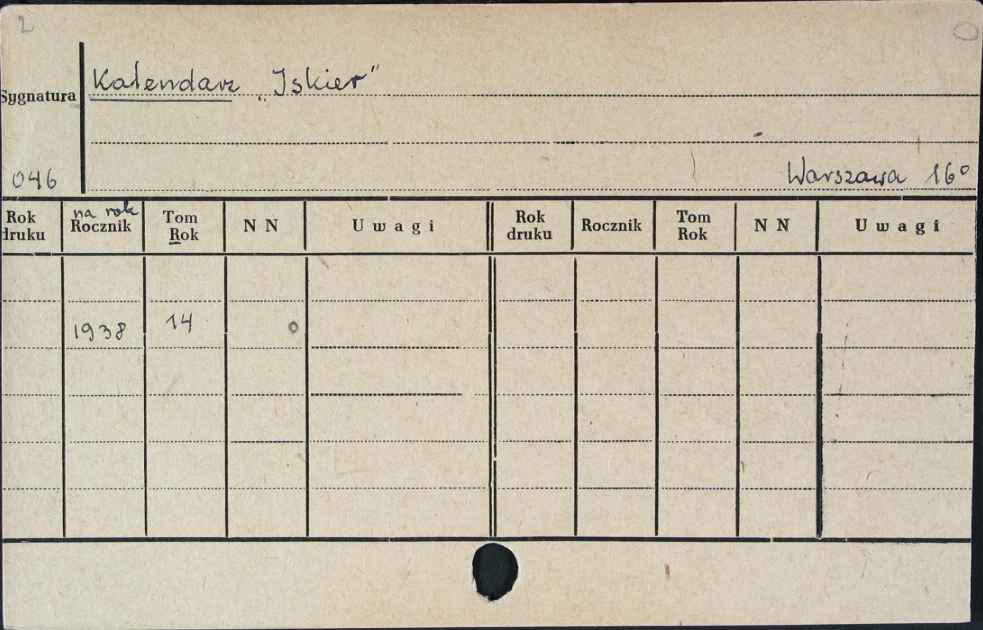 2
Kalendarz „Iskier”
Sygnatura
046
Warszawa 16°
Rok druku
na rok
Rocznik
Tom Rok
N N
Uwagi
Rok druku
Rocznik
Tom Rok
N N
Uwagi
1938 14 0